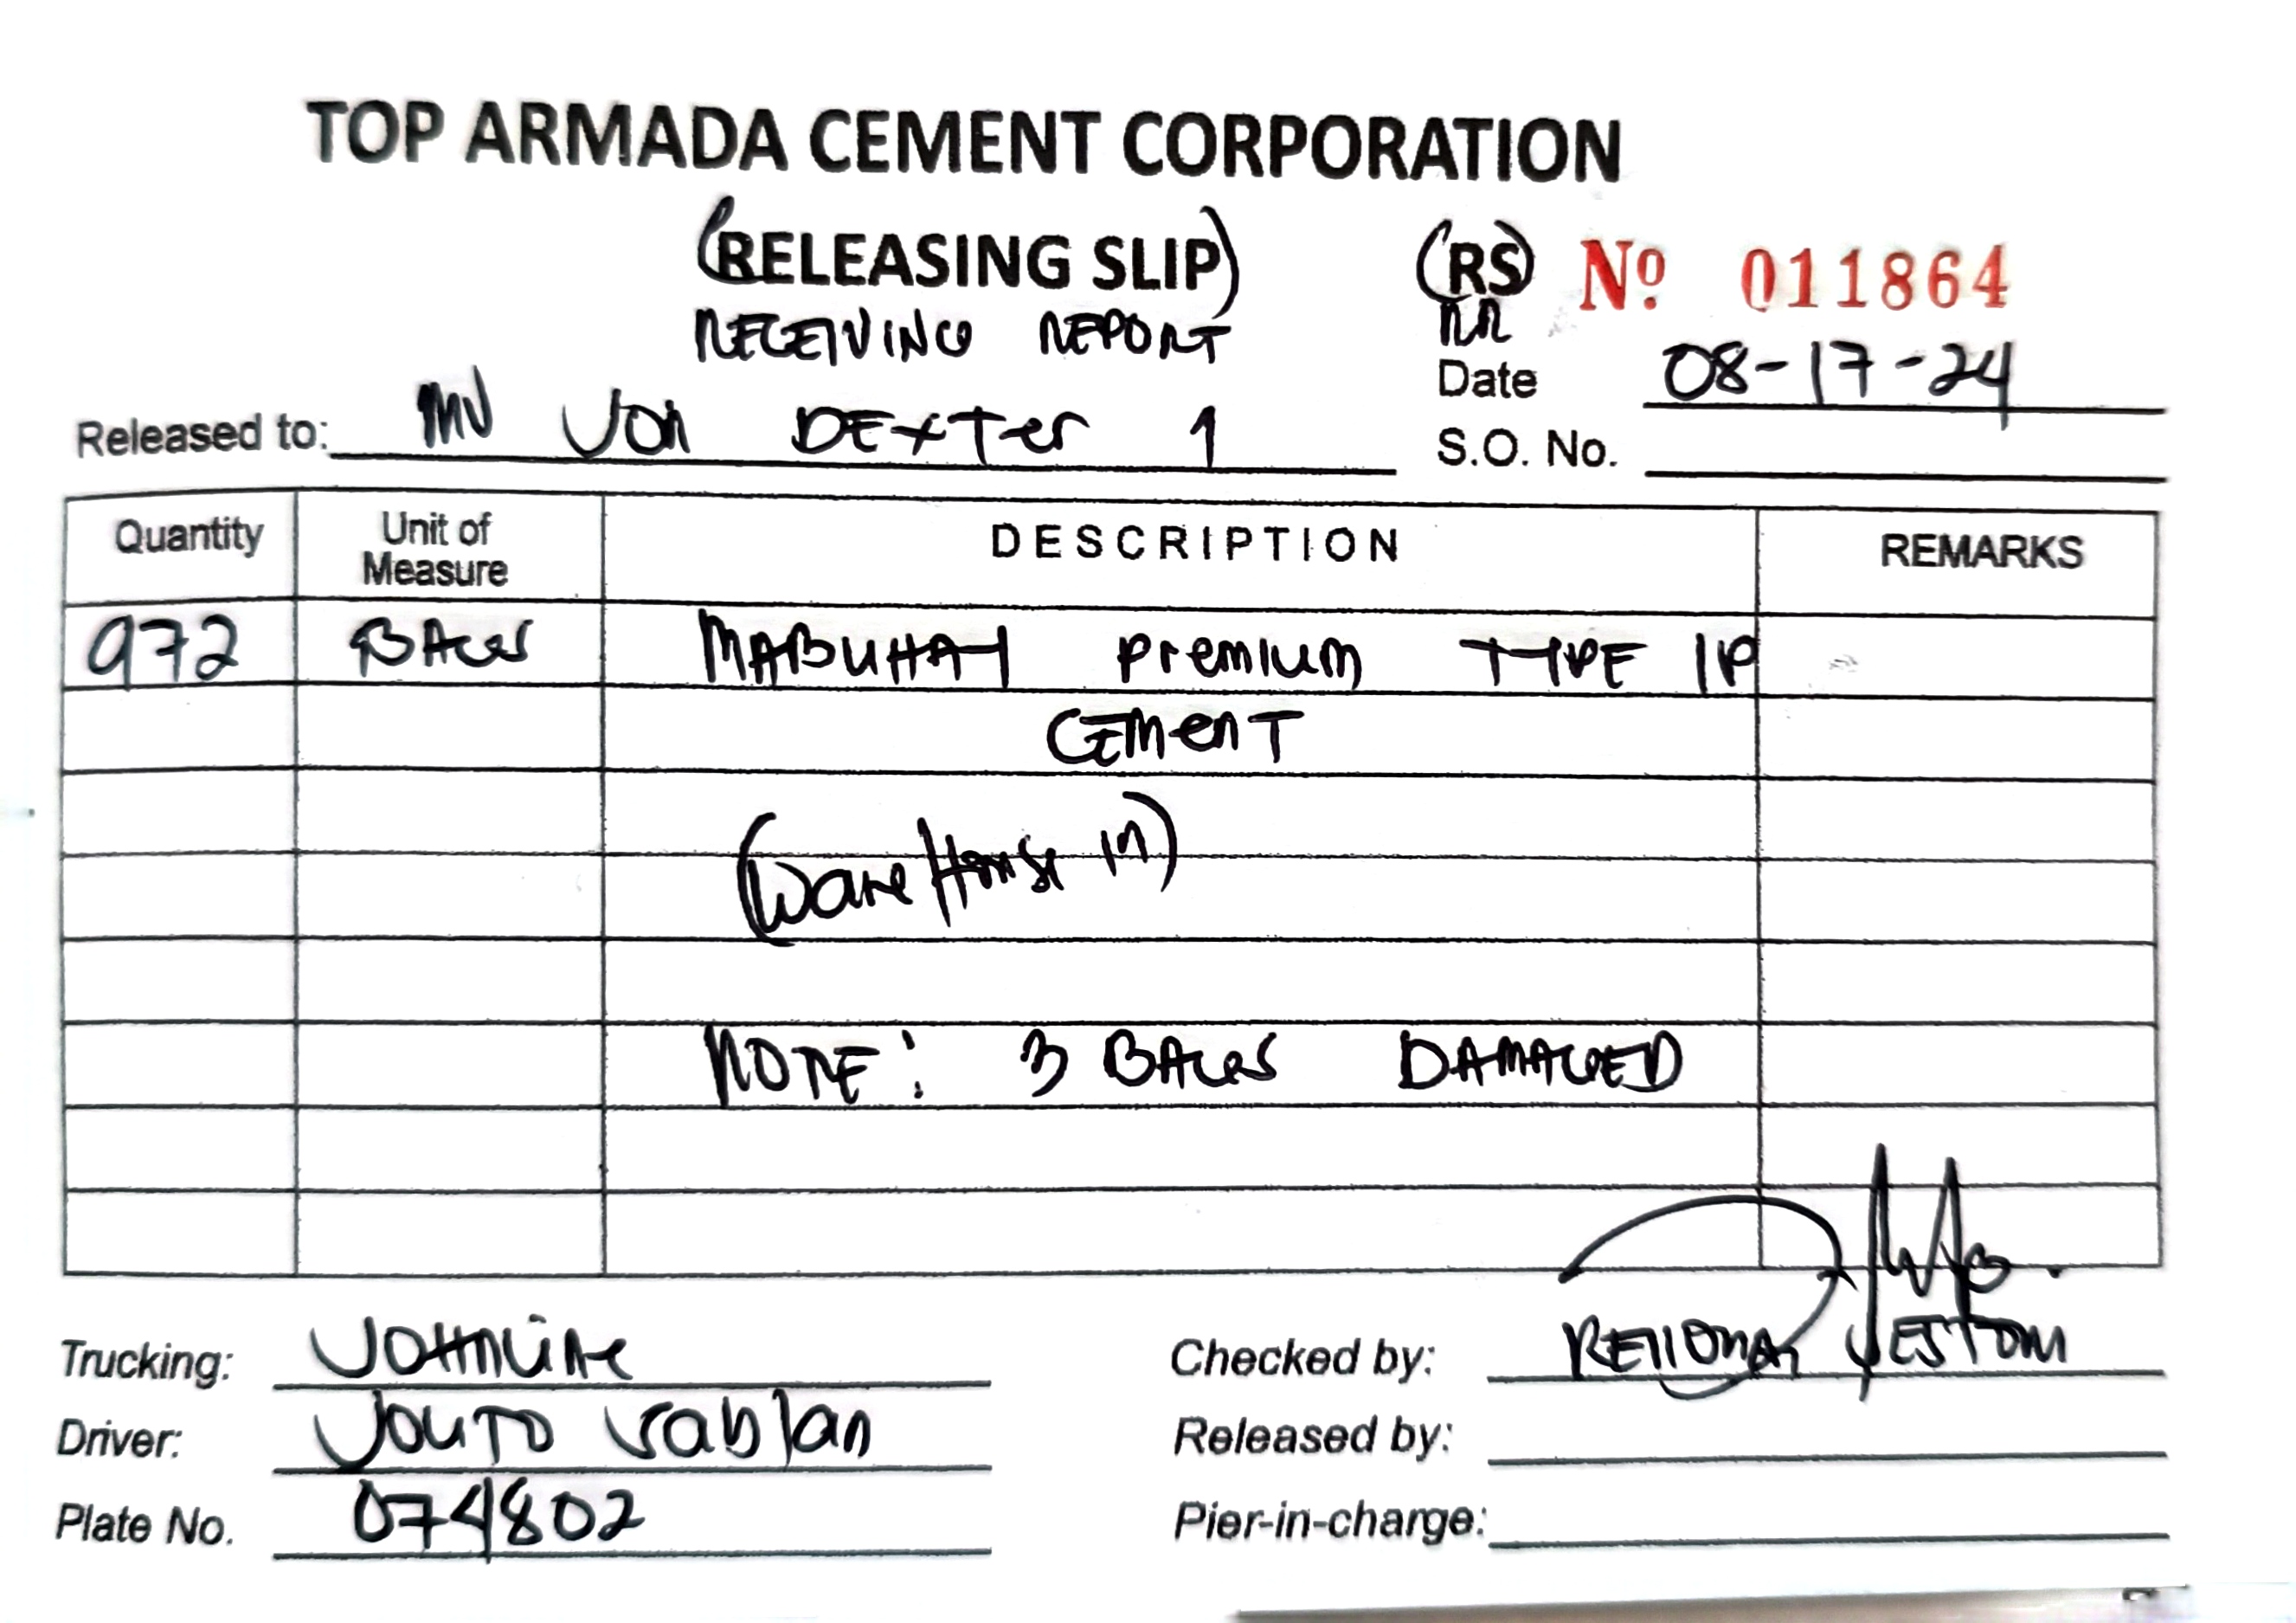 TOP ARMADA CEMENT CORPORATION
(RELEASING SLIP) (RS) Nº 011864
RECEIVING REPORT RR
Date 08-17-24
Released to: MV VON DEXTER 1
S.O. No.
Quantity Unit of Measure DESCRIPTION REMARKS
972 BAGS MABUHAY PREMIUM TYPE 1P
CEMENT
(WareHouse in)
NOTE: 3 BAGS DAMAGED
Trucking: JOHNLINE Checked by: JESTONI
Driver: Released by:
Plate No. 074802 Pier-in-charge: